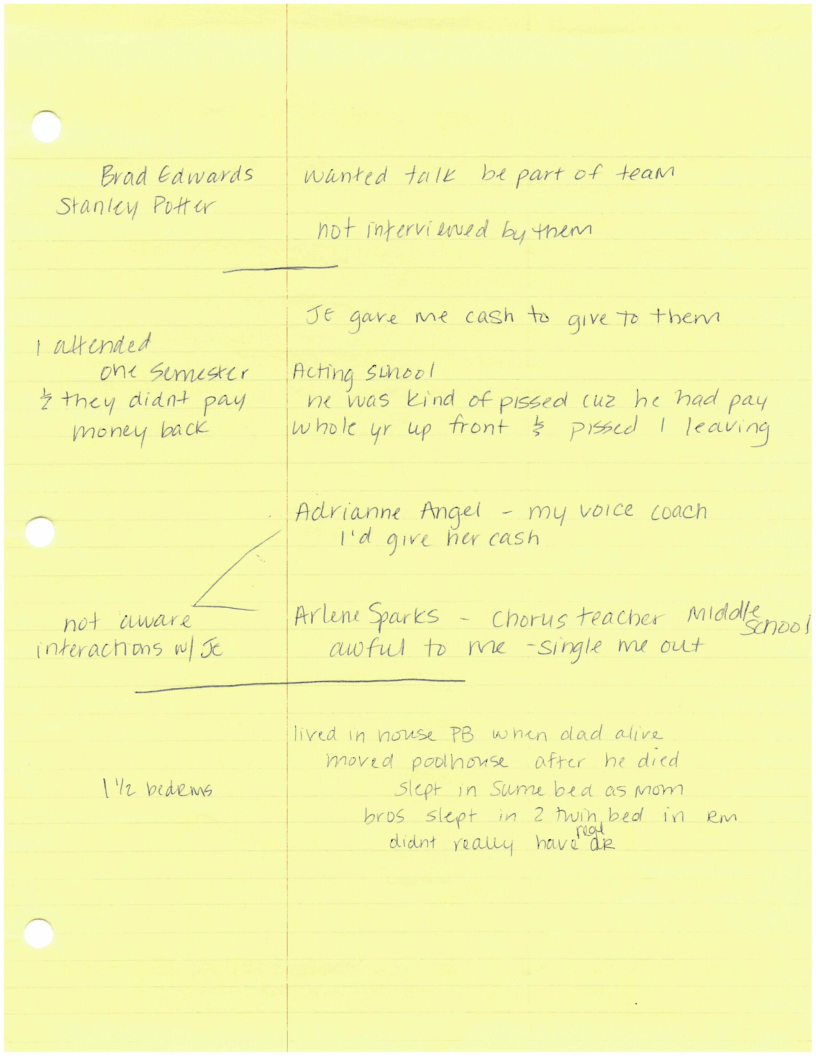 Brad Edwards wanted talk be part of team
Stanley Potter
not interviewed by them
JE gave me cash to give to them
I attended
one semester Acting school
& they didnt pay he was kind of pissed cuz he had pay
money back whole yr up front & pissed I leaving
Adrianne Angel - my voice coach
I'd give her cash
not aware Arlene Sparks - Chorus teacher Middle School
interactions w/ JE awful to me - single me out
lived in house PB when dad alive
moved poolhouse after he died
1 1/2 bedrms slept in same bed as mom
bros slept in 2 twin bed in RM
didnt really have real